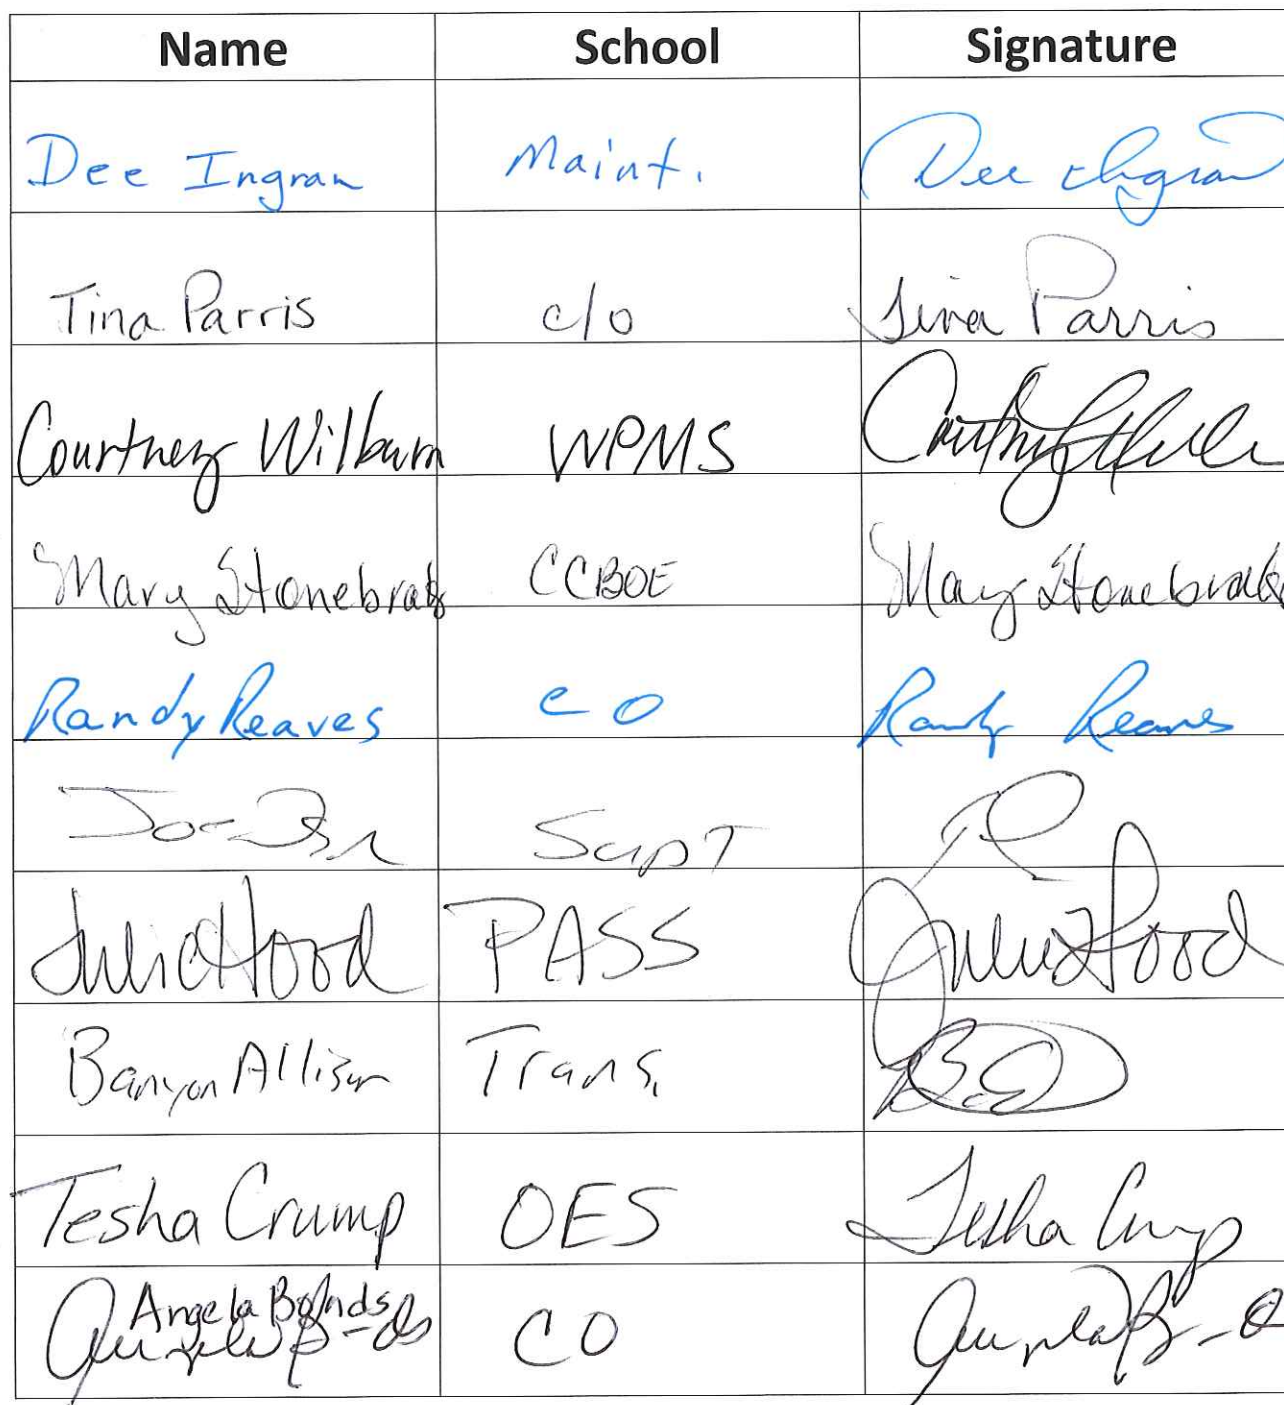 Name School Signature
Dee Ingram Maint. Dee Ingram
Tina Parris c/o Tina Parris
Courtney Wilburn WPMS Courtney
Mary Stonebraker CCBOE Mary Stonebraker
Randy Reaves CO Randy Reaves
Joe Supt
Julie Hood PASS Julie Hood
Banyon Allison Trans.
Tesha Crump OES Tesha Crump
Angela Bonds CO Angela